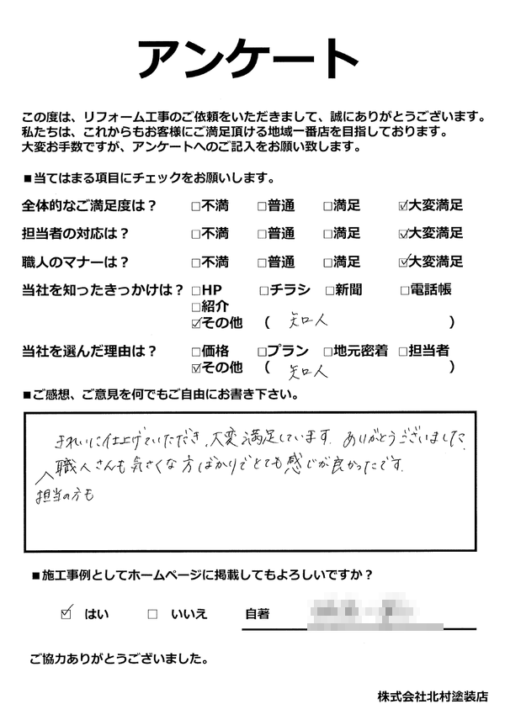 アンケート
この度は、リフォーム工事のご依頼をいただきまして、誠にありがとうございます。
私たちは、これからもお客様にご満足頂ける地域一番店を目指しております。
大変お手数ですが、アンケートへのご記入をお願い致します。
■当てはまる項目にチェックをお願いします。
全体的なご満足度は？ □不満 □普通 □満足 ☑大変満足
担当者の対応は？ □不満 □普通 □満足 ☑大変満足
職人のマナーは？ □不満 □普通 □満足 ☑大変満足
当社を知ったきっかけは？ □HP □チラシ □新聞 □電話帳
□紹介
☑その他 （ 知人 ）
当社を選んだ理由は？ □価格 □プラン □地元密着 □担当者
☑その他 （ 知人 ）
■ご感想、ご意見を何でもご自由にお書き下さい。
きれいに仕上げていただき、大変満足しています。ありがとうございました。
職人さんも気さくな方ばかりでとても感じが良かったです。
担当の方も
■施工事例としてホームページに掲載してもよろしいですか？
☑ はい □ いいえ 自著
ご協力ありがとうございました。
株式会社北村塗装店